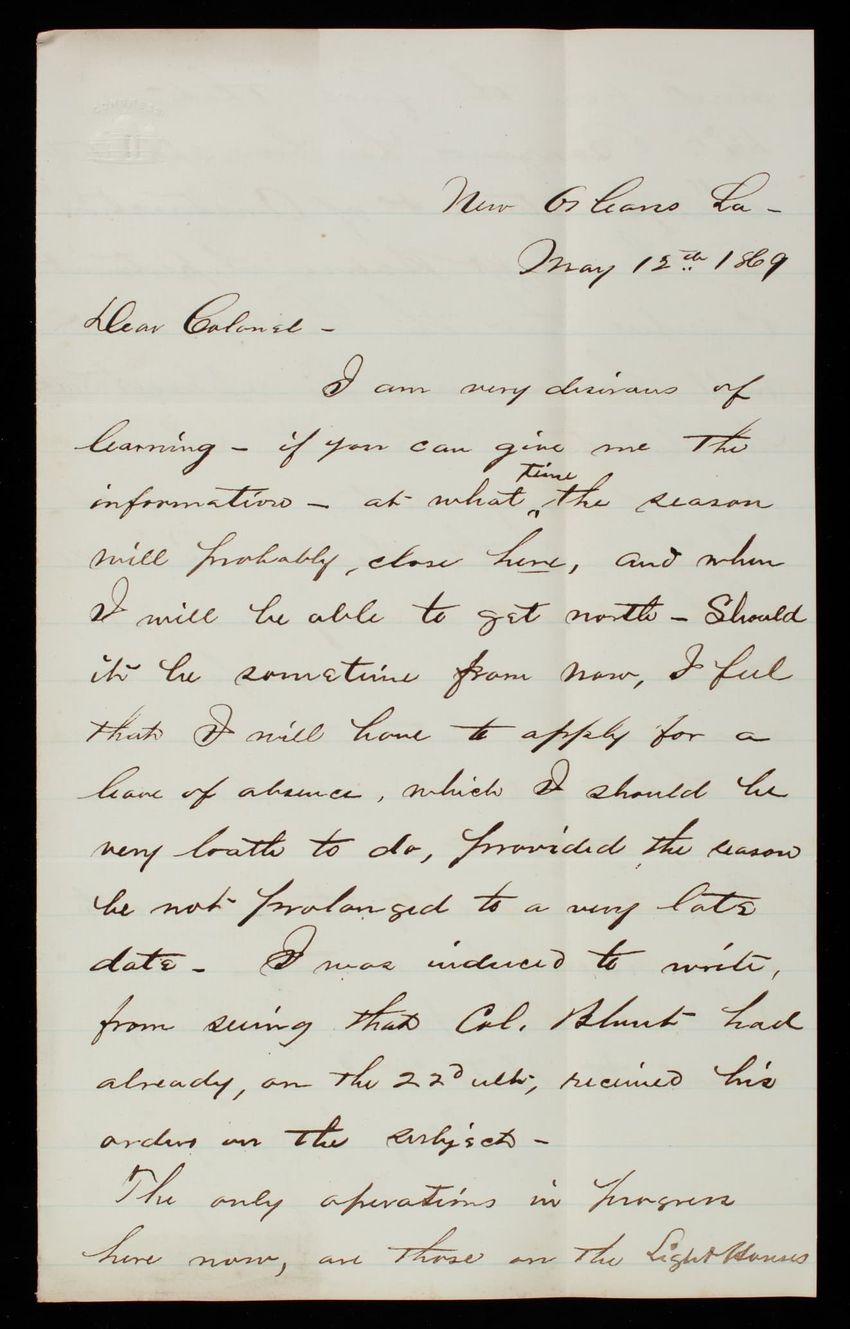 CONGRESS
New Orleans La -
May 12th 1869
Dear Colonel -
I am very desirous of
learning - if you can give me the
time
information - at what ‸ the season
will probably, close here, and when
I will be able to get north - Should
it be sometime from now, I feel
that I will have to apply for a
leave of absence, which I should be
very loath to do, provided the season
be not prolonged to a very late
date - I was induced to write,
from seeing that Col. Blunt had
already, on the 22d ult, received his
orders on the subject -
The only operations in progress
here now, are those on the Light Houses